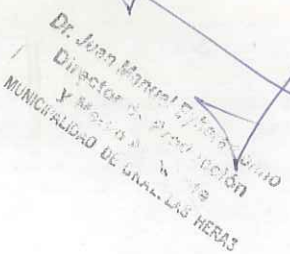 Dr. Juan Manuel
Director de Producción
y
MUNICIPALIDAD DE GRAL. LAS HERAS